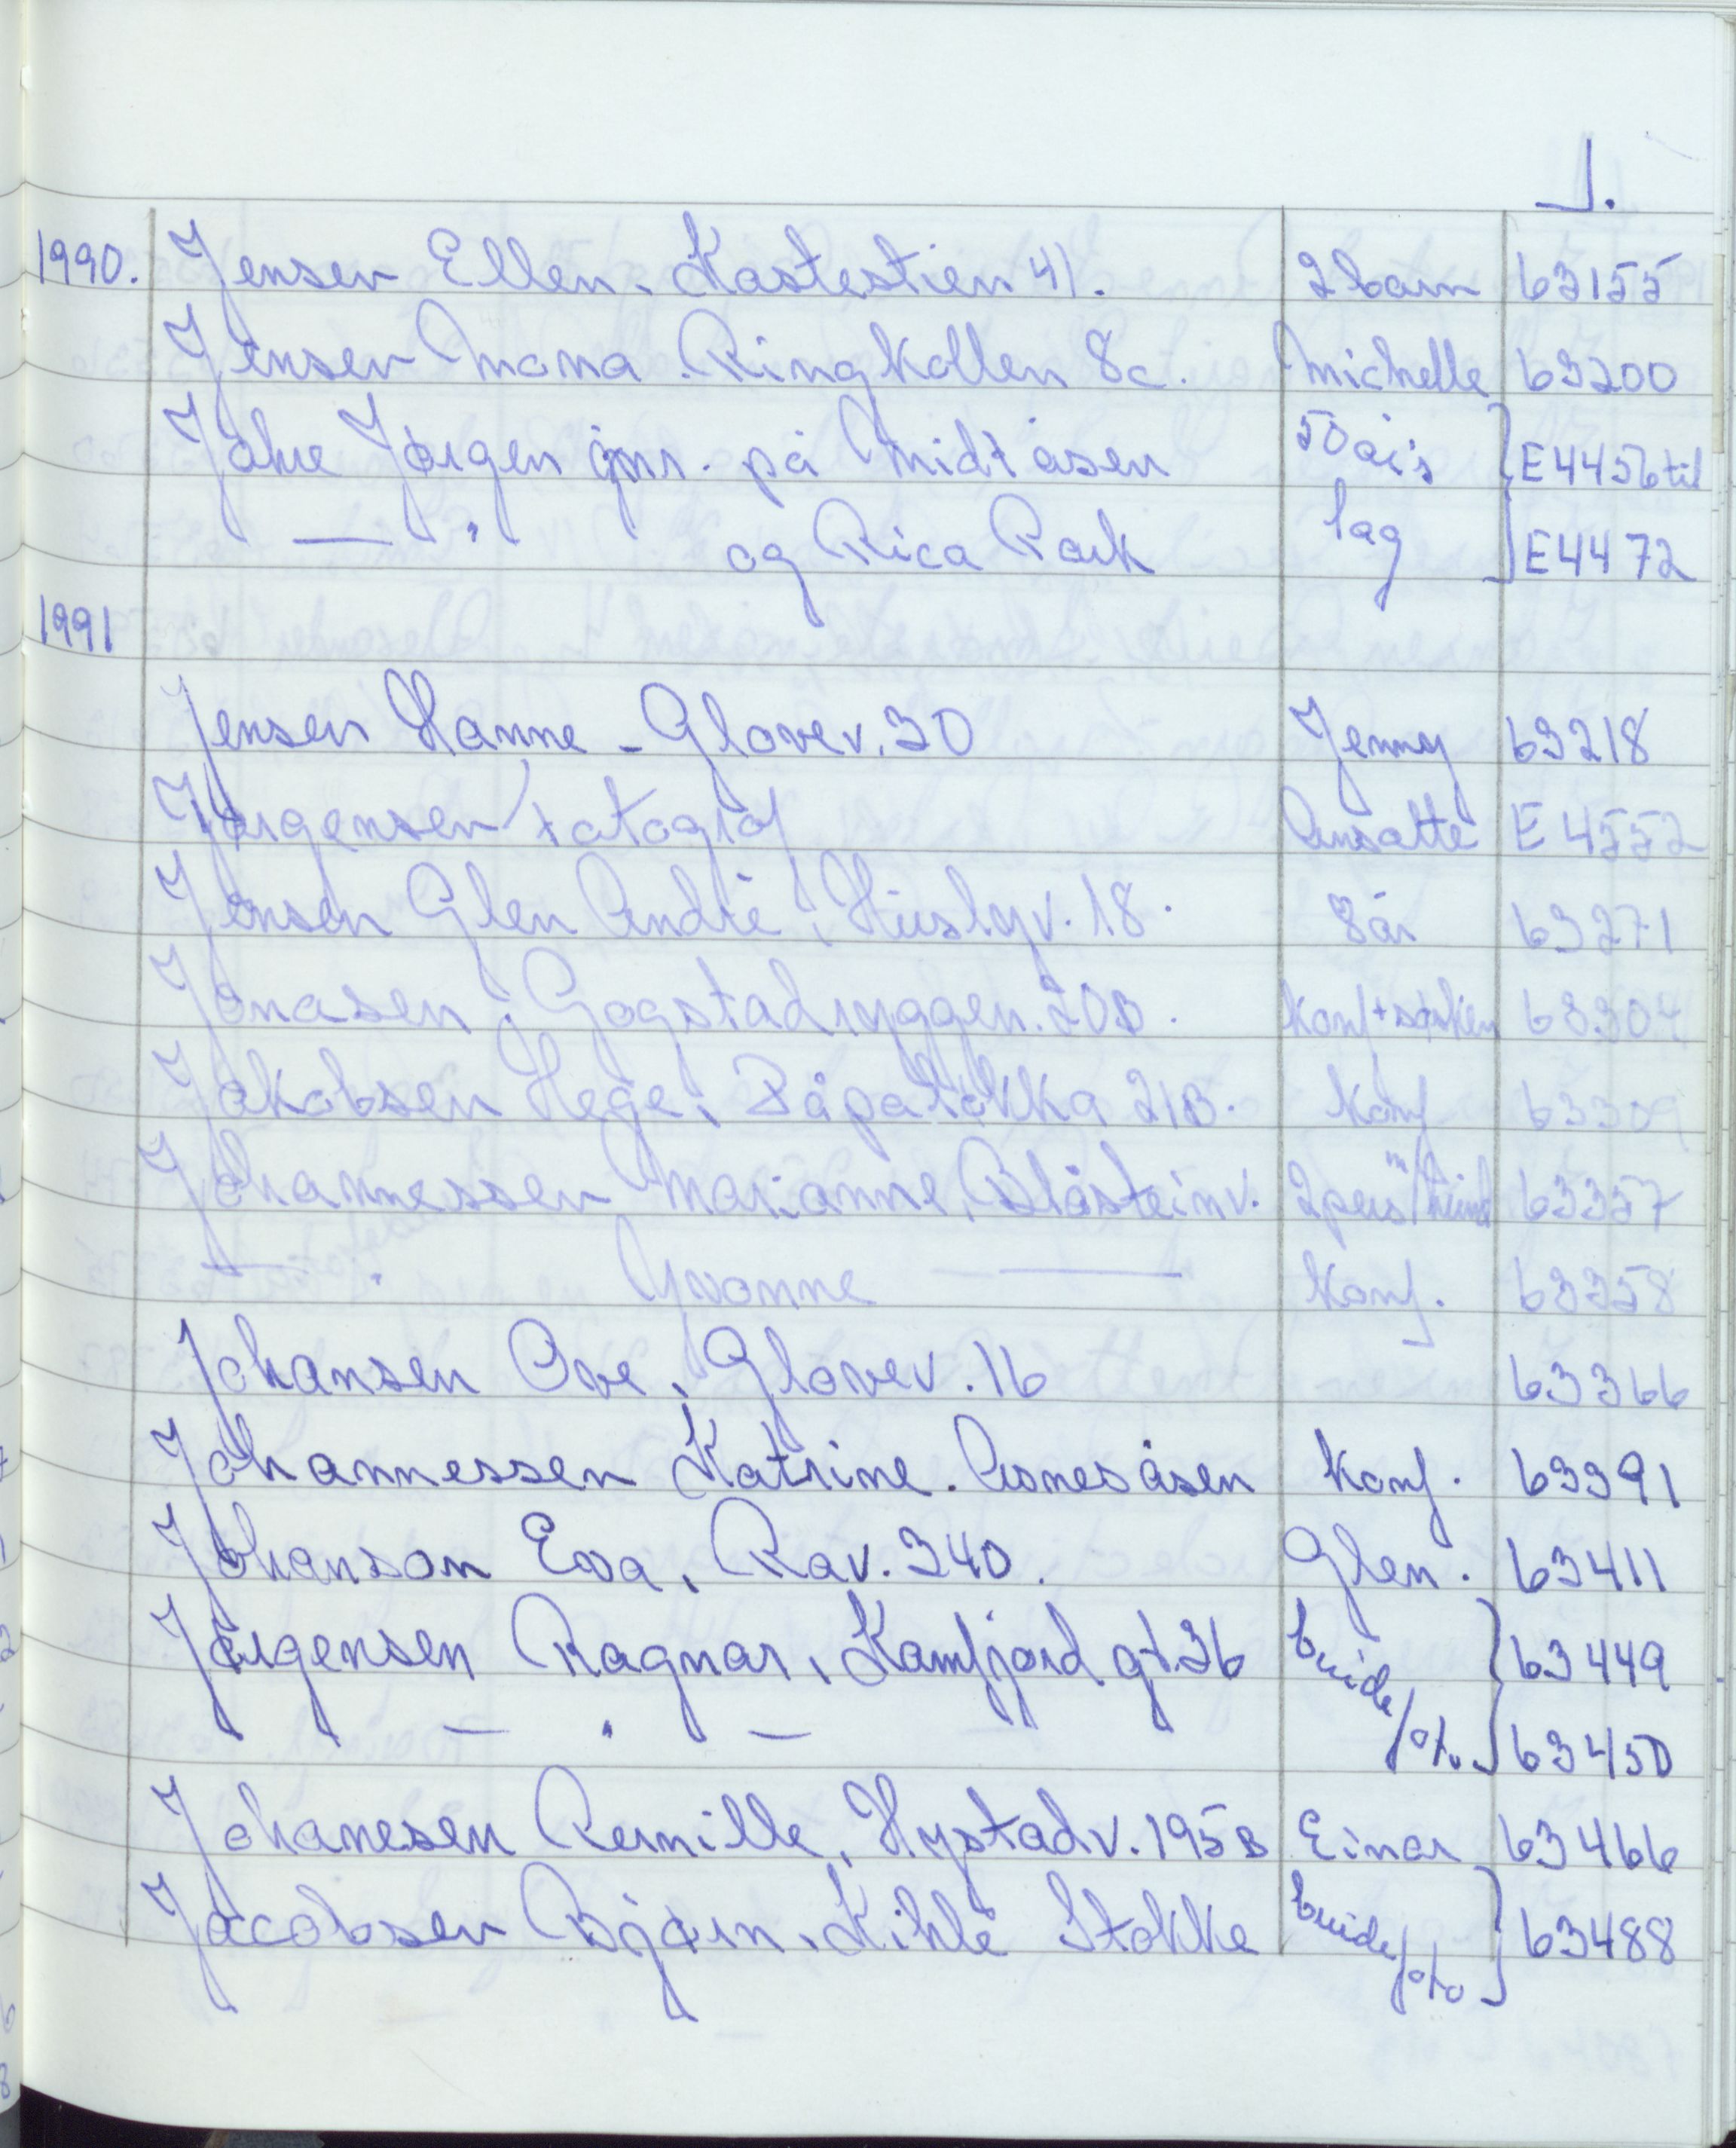 J.
1990. Jensen Ellen. Kastestien 41. 2 barn 63155
Jensen Mona. Ringkollen 8c. Michelle 63200
Jahre Jørgen jnr. på Midtåsen 50 års E4456 til
— " og Rica Park lag E4472
1991
Jensen Hanne - Glovev. 30 Jenny 63218
Jørgensen fotograf Ansatte E 4552
Jensen Glen André, Huslyv. 18. 8 år 63271
Jonasen. Gogstadryggen. 20D. Konf + søsken 63304
Jakobsen Hege, Båpaløkka 21B. Konf 63309
Johannessen Marianne, Blåsteinv. 2 pers m/hund 63357
— " Yvonne — Konf. 63358
Johansen Ove, Glovev. 16 63366
Johannessen Katrine. Asnesåsen Konf. 63391
Johanson Eva, Rav. 340. Glen. 63411
Jørgensen Ragnar, Kamfjord gt. 36 brude 63449
— " — /% 63450
Johanesen Pernille, Hystadv. 195B Einar 63466
Jacobsen Bjørn. Kihle Stokke brude/% 63488